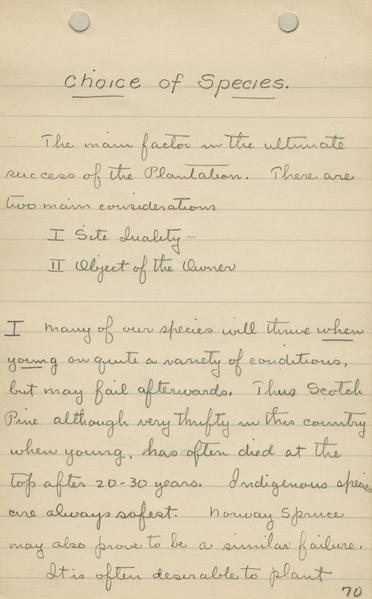 Choice of Species.
The main factor in the ultimate
success of the Plantation. There are
two main considerations
I Site Quality -
II Object of the Owner
I many of our species will thrive when
young on quite a variety of conditions,
but may fail afterwards. Thus Scotch
Pine although very thrifty in this country
when young, has often died at the
top after 20-30 years. Indigenous species
are always safest. Norway Spruce
may also prove to be a similar failure.
It is often desirable to plant
70